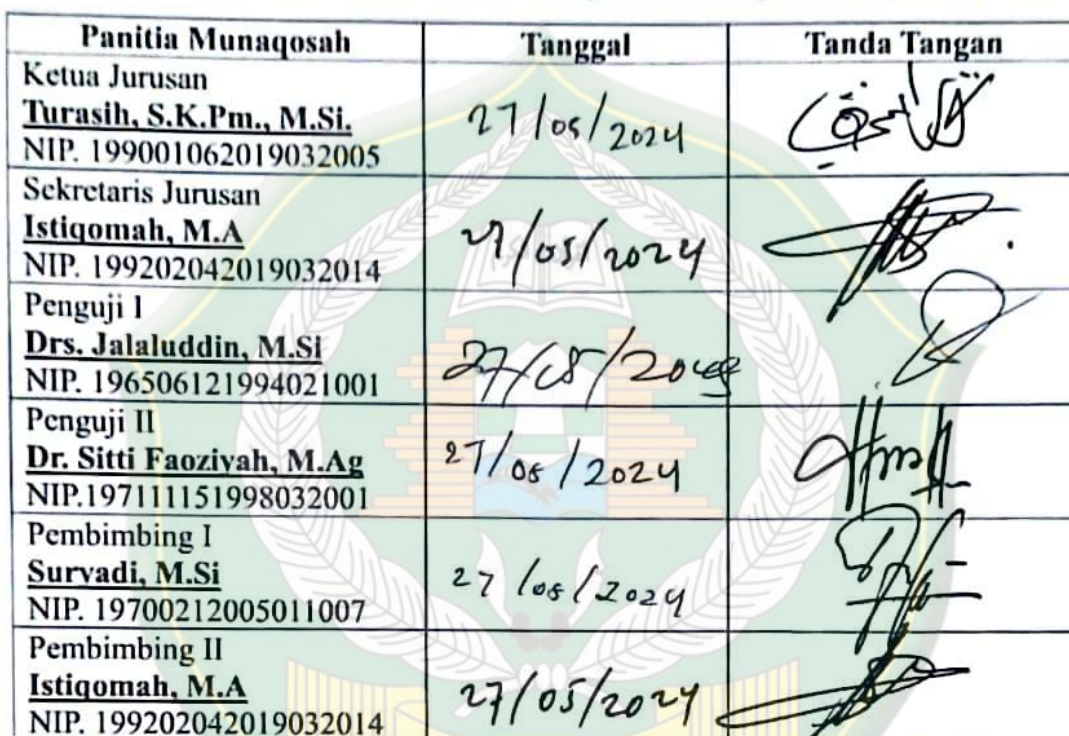 Panitia Munaqosah Tanggal Tanda Tangan
Ketua Jurusan
Turasih, S.K.Pm., M.Si.
NIP. 199001062019032005
27/05/2024
Sekretaris Jurusan
Istiqomah, M.A
NIP. 199202042019032014
27/05/2024
Penguji I
Drs. Jalaluddin, M.Si
NIP. 196506121994021001
Penguji II
Dr. Sitti Faoziyah, M.Ag
NIP.197111151998032001
27/05/2024
Pembimbing I
Suryadi, M.Si
NIP. 19700212005011007
27/05/2024
Pembimbing II
Istiqomah, M.A
NIP. 199202042019032014
27/05/2024